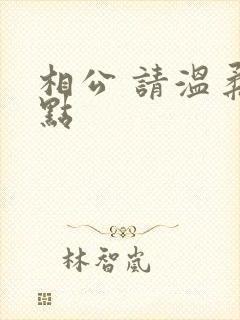 相公 請溫柔
點
林智嵐